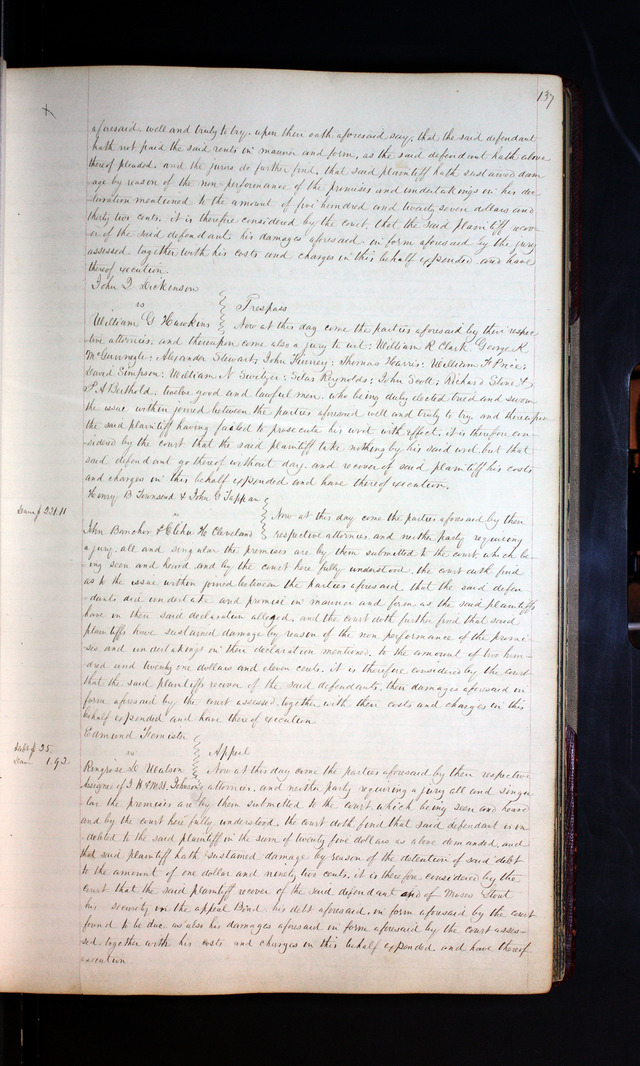 137
aforesaid. well and truly to try. upon their oath aforesaid say, that the said defendant
hath not paid the said rents in manner and form, as the said defendant hath above
thereof pleaded. and the jurors do further find, that said plaintiff hath sustained dam-
age by reason of the non-performance of the premises and undertakings in his dec-
laration mentioned to the amount of five hundred and twenty seven dollars and
thirty two cents. it is therefore considered by the court, that the said plaintiff recov-
er of the said defendant his damages aforesaid in form aforesaid by the jury
assessed. together with his costs and charges in this behalf expended and have
thereof execution.
John D Dickinson
vs Trespass
William G Hawkins Now at this day come the parties aforesaid by their respec-
tive attornies. and thereupon come also a jury to wit: William R Clark. George K
McGunnegle: Alexander Stewart; John Finney; Thomas Harris: William F Price;
David Simpson: William N Switzer; Silas Reynolds; John Scott; Richard Stone &
P. A Berthold. twelve good and lawful men. who being duly elected tried and sworn
the issue within joined between the parties aforesaid well and truly to try. and thereupon
the said plaintiff having failed to prosecute his writ with effect. it is therefore con-
sidered by the court that the said plaintiff take nothing by his said writ. but that
said defendant go thereof without day. and recover of said plaintiff his costs
and charges in this behalf expended and have thereof execution.
Henry B Townsend & John G Tappan
Dam $ 221.11
vs Now at this day come the parties aforesaid by their
John &amp; Elihu H Cleveland respective attornies. and neither party requiring
a jury. all and singular the premises are by them submitted to the court which be-
ing seen and heard. and by the court here fully understood. the court doth find
as to the issue within joined between the parties aforesaid. that the said defen-
dants did undertake and promise in manner and form as the said plaintiffs
have in their said declaration alleged, and the court doth further find that said
plaintiffs have sustained damage by reason of the non performance of the premi-
ses and undertakings in their declaration mentioned. to the amount of two hun-
dred and twenty one dollars and eleven cents. it is therefore considered by the court
that the said plaintiffs recover of the said defendants, their damages aforesaid in
form aforesaid by the court assessed. together with their costs and charges in this
behalf expended and have thereof execution
Edmund
Debt $ 25.
Dam 1.92
vs Appeal
Ringrose D Watson Now at this day come the parties aforesaid by their respective
Assignee of J. H & M. S. Johnson attornies. and neither party requiring a jury all and singu-
lar the premises are by them submitted to the court which being seen and heard
and by the court here fully understood. the court doth find that said defendant is in-
debted to the said plaintiff in the sum of twenty five dollars as above demanded, and
that said plaintiff hath sustained damage by reason of the detention of said debt
to the amount of one dollar and ninety two cents. it is therefore considered by the
court that the said plaintiff recover of the said defendant and of Moses Stout
his security in the appeal Bond. his debt aforesaid, in form aforesaid by the court
found to be due as also his damages aforesaid in form aforesaid by the court asses-
sed. together with his costs and charges in this behalf expended. and have thereof
execution